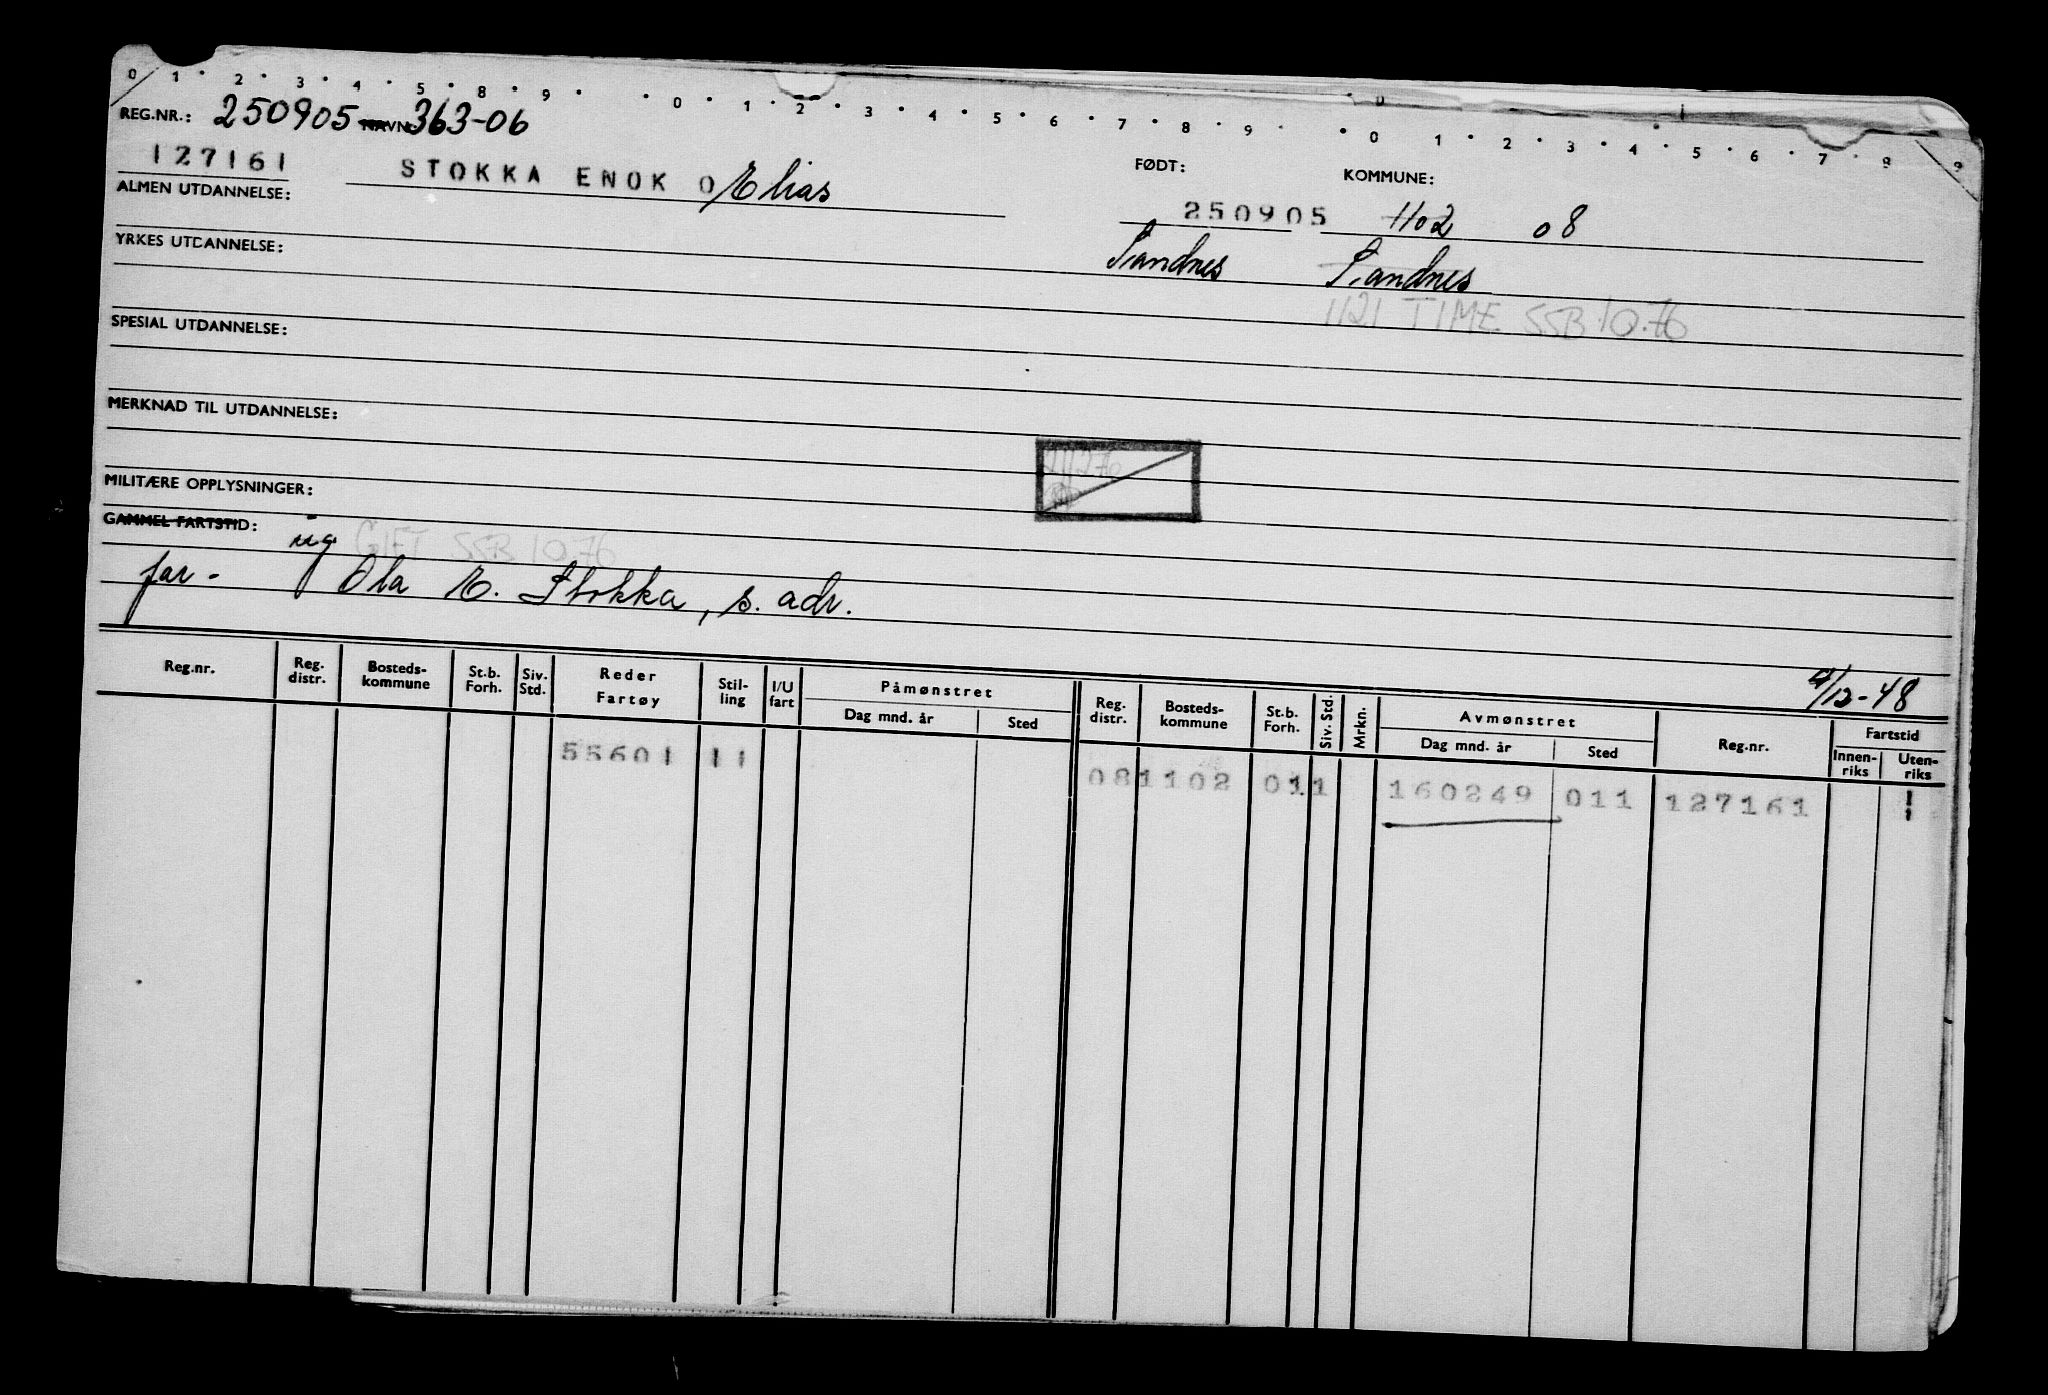 0 1 2 3 4 5 8 9 0 1 2 3 4 5 6 7 8 9 0 1 2 3 4 5 6 7 8 9
REG.NR.: 250905 NAVN: 363-06
127161 STOKKA ENOK O Elias FØDT: KOMMUNE:
ALMEN UTDANNELSE: 250905 1102 08
YRKES UTDANNELSE: Sandnes Sandnes
1121 TIME SSB 10.76
SPESIAL UTDANNELSE:
MERKNAD TIL UTDANNELSE:
MILITÆRE OPPLYSNINGER:
GAMMEL FARTSTID: ug GIFT SSB 10.76
far - Ola E. Stokka, s. adr.
4/12-48
Reg.nr. Reg. distr. Bosteds-kommune St.b. Forh. Siv. Std. Reder Fartøy Stil-ling I/U fart Påmønstret Dag mnd. år Sted Reg. distr. Bosteds-kommune St.b. Forh. Siv. Std. Mrkn. Avmønstret Dag mnd. år Sted Reg.nr. Fartstid Innen-riks Uten-riks
55601 11 081102 011 160249 011 127161 1